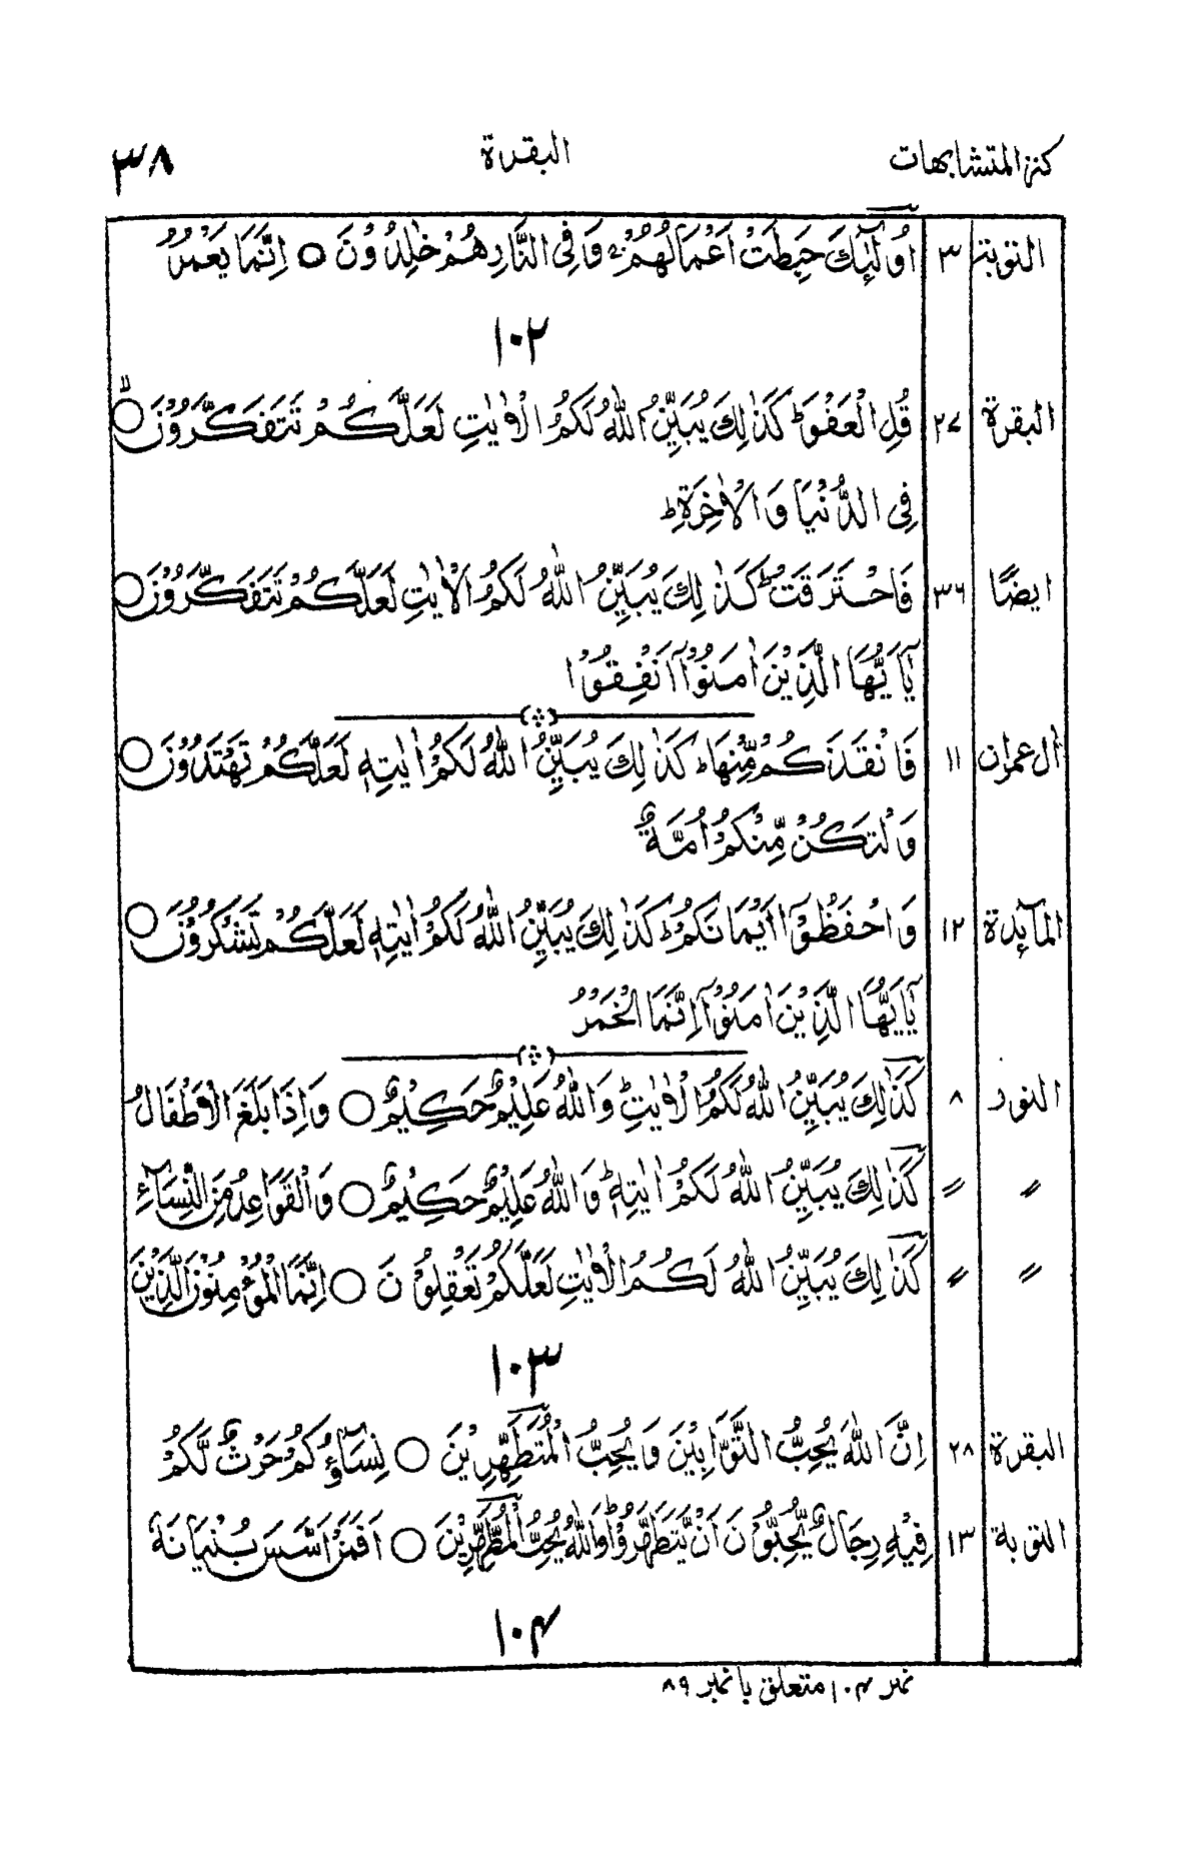 كنز المتشابهات البقرة ٣٨
التوبة ٣ اُولٰٓئِكَ حَبِطَتْ اَعْمَالُهُمْ ۚ وَفِى النَّارِ هُمْ خٰلِدُوْنَ ○ اِنَّمَا يَعْمُرُ
١٠٢
البقرة ٢٧ قُلِ الْعَفْوَ ؕ كَذٰلِكَ يُبَيِّنُ اللّٰهُ لَكُمُ الْاٰيٰتِ لَعَلَّكُمْ تَتَفَكَّرُوْنَ ○ ۙ
فِى الدُّنْيَا وَالْاٰخِرَةِ ؕ
ايضًا ٣٦ فَاحْتَرَقَتْ ؕ كَذٰلِكَ يُبَيِّنُ اللّٰهُ لَكُمُ الْاٰيٰتِ لَعَلَّكُمْ تَتَفَكَّرُوْنَ ○
يٰٓاَيُّهَا الَّذِيْنَ اٰمَنُوْٓا اَنْفِقُوْا
اٰل عمران ١١ فَاَنْقَذَكُمْ مِّنْهَا ؕ كَذٰلِكَ يُبَيِّنُ اللّٰهُ لَكُمْ اٰيٰتِهٖ لَعَلَّكُمْ تَهْتَدُوْنَ ○
وَلْتَكُنْ مِّنْكُمْ اُمَّةٌ
المآئدة ١٢ وَاحْفَظُوْٓا اَيْمَانَكُمْ ؕ كَذٰلِكَ يُبَيِّنُ اللّٰهُ لَكُمْ اٰيٰتِهٖ لَعَلَّكُمْ تَشْكُرُوْنَ ○
يٰٓاَيُّهَا الَّذِيْنَ اٰمَنُوْٓا اِنَّمَا الْخَمْرُ
النور ٨ كَذٰلِكَ يُبَيِّنُ اللّٰهُ لَكُمُ الْاٰيٰتِ ؕ وَاللّٰهُ عَلِيْمٌ حَكِيْمٌ ○ وَاِذَا بَلَغَ الْاَطْفَالُ
〃 〃 كَذٰلِكَ يُبَيِّنُ اللّٰهُ لَكُمْ اٰيٰتِهٖ ؕ وَاللّٰهُ عَلِيْمٌ حَكِيْمٌ ○ وَالْقَوَاعِدُ مِنَ النِّسَآءِ
〃 〃 كَذٰلِكَ يُبَيِّنُ اللّٰهُ لَكُمُ الْاٰيٰتِ لَعَلَّكُمْ تَعْقِلُوْنَ ○ اِنَّمَا الْمُؤْمِنُوْنَ الَّذِيْنَ
١٠٣
البقرة ٢٨ اِنَّ اللّٰهَ يُحِبُّ التَّوَّابِيْنَ وَيُحِبُّ الْمُتَطَهِّرِيْنَ ○ نِسَآؤُكُمْ حَرْثٌ لَّكُمْ
التوبة ١٣ فِيْهِ رِجَالٌ يُّحِبُّوْنَ اَنْ يَّتَطَهَّرُوْا ؕ وَاللّٰهُ يُحِبُّ الْمُطَّهِّرِيْنَ ○ اَفَمَنْ اَسَّسَ بُنْيَانَهٗ
١٠٤
نمبر ١٠٤ متعلق با نمبر ٨٩